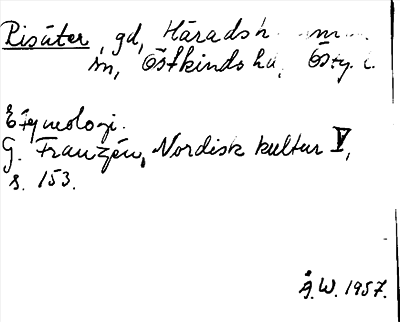 Risäter, gd, Häradsh m
sn, Östkinds hd, Östg. l.
Etymologi.
G. Franzén, Nordisk kultur V,
s. 153.
Å.W. 1957.